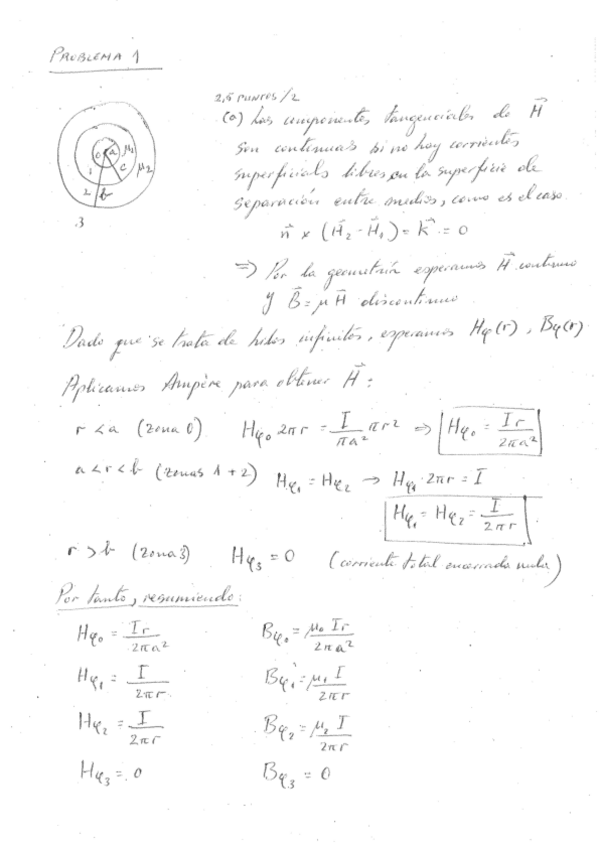 PROBLEMA 1
2,5 PUNTOS/2
(a) Las componentes tangenciales de H⃗
son continuas si no hay corrientes
superficiales libres en la superficie de
separación entre medios, como es el caso.
n⃗ × (H⃗₂ - H⃗₁) = K⃗ = 0
⇒ Por la geometría esperamos H⃗ continuo
y B⃗ = μH⃗ discontinuo
0 a μ₁ μ₂
1 c
2 b
3
Dado que se trata de hilos infinitos, esperamos Hφ(r), Bφ(r)
Aplicamos Ampère para obtener H⃗:
r < a (zona 0) Hφ₀ 2πr = I/πa² πr² ⇒ Hφ₀ = Ir/2πa²
a < r < b (zonas 1+2) Hφ₁ = Hφ₂ → Hφ₁·2πr = I
Hφ₁ = Hφ₂ = I/2πr
r > b (zona 3) Hφ₃ = 0 (corriente total encerrada nula)
Por tanto, resumiendo:
Hφ₀ = Ir/2πa² Bφ₀ = μ₀ Ir/2πa²
Hφ₁ = I/2πr Bφ₁ = μ₁ I/2πr
Hφ₂ = I/2πr Bφ₂ = μ₂ I/2πr
Hφ₃ = 0 Bφ₃ = 0